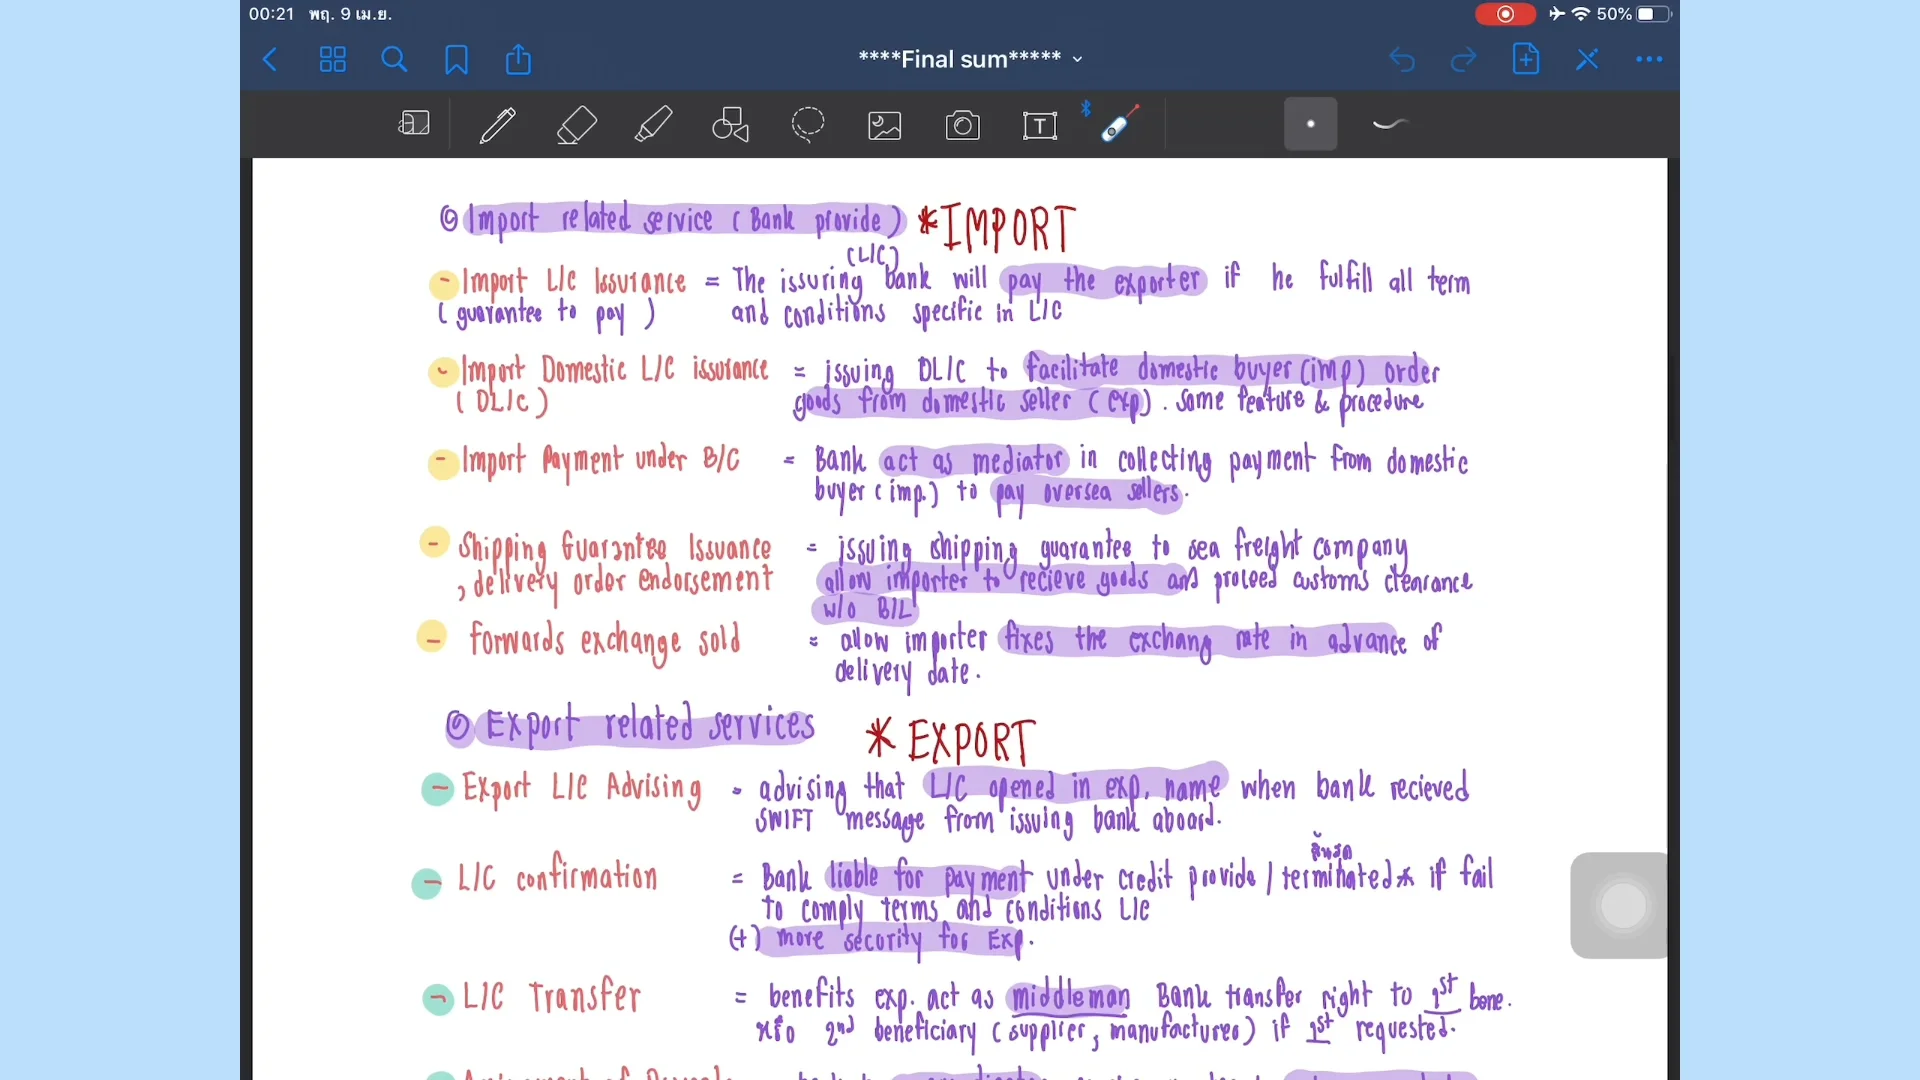 00:21 พฤ. 9 เม.ย.
50%
****Final sum*****
T
Import related service ( Bank provide ) *IMPORT
(L/C)
- Import L/C Issurance = The issuring bank will pay the exporter if he fulfill all term
( guarantee to pay ) and conditions specific in L/C
- Import Domestic L/C issurance = issuing DL/C to facilitate domestic buyer (imp) order
( DL/C ) goods from domestic seller ( exp) . same feature & procedure
- Import Payment under B/C = Bank act as mediator in collecting payment from domestic
buyer ( imp.) to pay oversea sellers.
- Shipping Guarantee Issuance = issuing shipping guarantee to sea freight company
, delivery order endorsement allow importer to recieve goods and proceed customs clearance
w/o B/L
- forwards exchange sold = allow importer fixes the exchang rate in advance of
delivery date.
Export related services * EXPORT
- Export L/C Advising = advising that L/C opened in exp. name when bank recieved
SWIFT message from issuing bank aboard.
สิ้นสุด
- L/C confirmation = Bank liable for payment under credit provide / terminated* if fail
to comply terms and conditions L/C
(+) more security for Exp.
- L/C Transfer = benefits exp. act as middleman Bank transfer right to 1st bene.
หรือ 2nd beneficiary ( supplier, manufactures) if 1st requested.